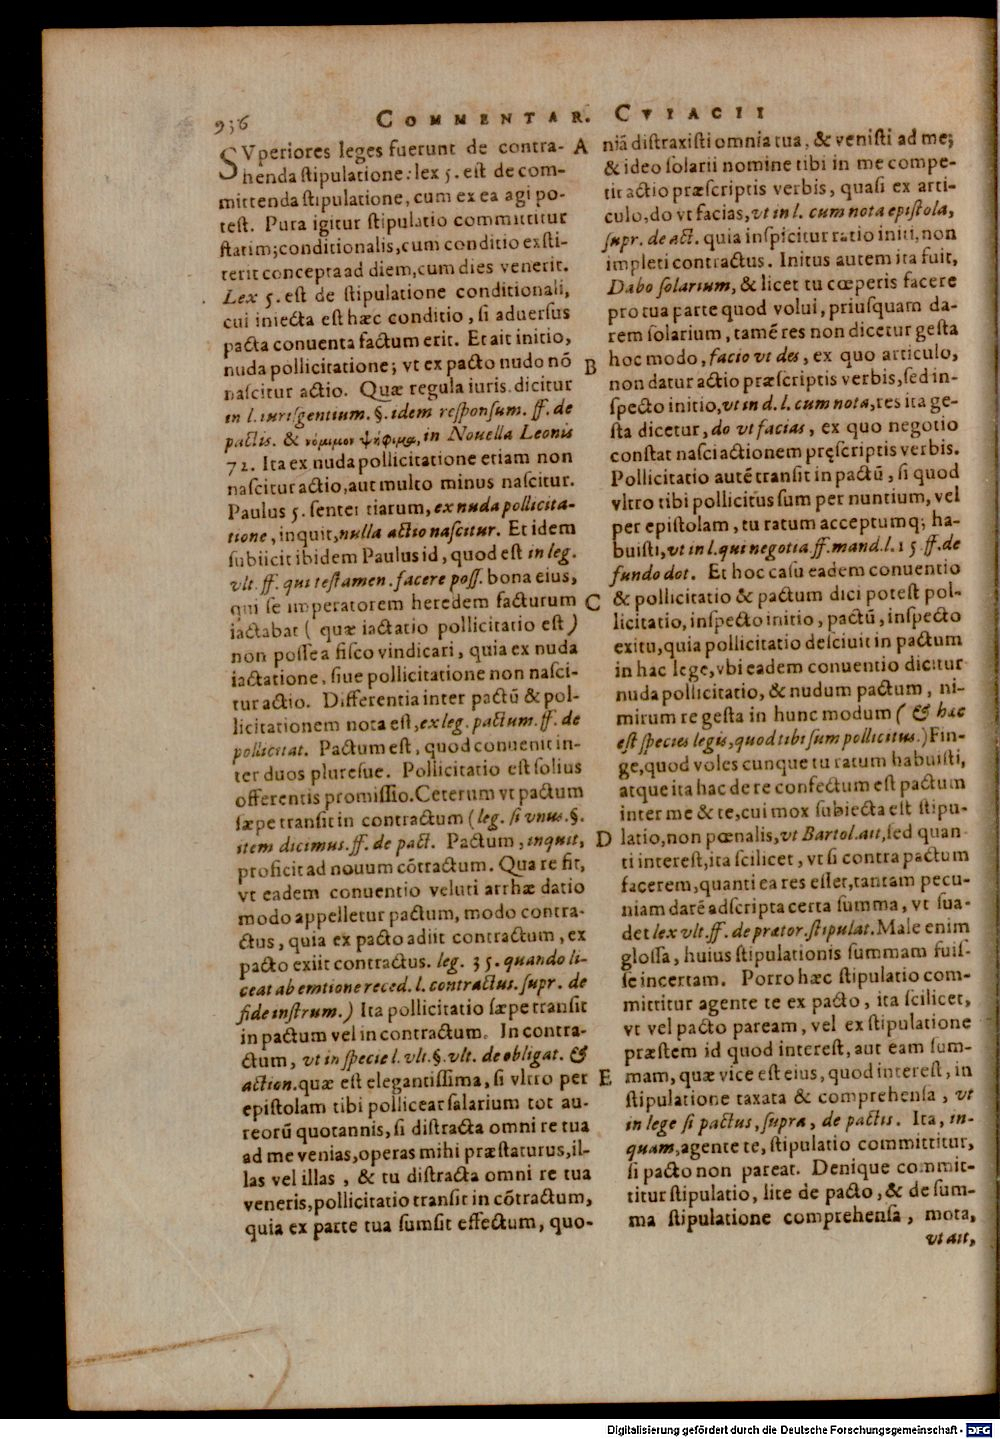 936
COMMENTAR. CVIACII
SVperiores leges fuerunt de contra-
henda stipulatione: lex 5. est de com-
mittenda stipulatione, cum ex ea agi po-
test. Pura igitur stipulatio committitur
statim; conditionalis, cum conditio exsti-
terit concepta ad diem, cum dies venerit.
Lex 5. est de stipulatione conditionali,
cui iniecta est hæc conditio, si aduersus
pacta conuenta factum erit. Et ait initio,
nuda pollicitatione; vt ex pacto nudo nō
nascitur actio. Quæ regula iuris dicitur
in l. iurisgentium. §. idem responsum. ff. de
pactis. & νόμιμον ψήφισμα, in Nouella Leonis
72. Ita ex nuda pollicitatione etiam non
nascitur actio, aut multo minus nascitur.
Paulus 5. sententiarum, ex nuda pollicita-
tione, inquit, nulla actio nascitur. Et idem
subiicit ibidem Paulus id, quod est in leg.
vlt. ff. qui testamen. facere poss. bona eius,
qui se imperatorem heredem facturum
iactabat ( quæ iactatio pollicitatio est )
non posse a fisco vindicari, quia ex nuda
iactatione, siue pollicitatione non nasci-
tur actio. Differentia inter pactū & pol-
licitationem nota est, ex leg. pactum. ff. de
pollicitat. Pactum est, quod conuenit in-
ter duos pluresue. Pollicitatio est solius
offerentis promissio. Ceterum vt pactum
sæpe transit in contractum (leg. si vnus. §.
item dicimus. ff. de pact. Pactum, inquit,
proficit ad nouum cōtractum. Qua re fit,
vt eadem conuentio veluti arrhæ datio
modo appelletur pactum, modo contra-
ctus, quia ex pacto adiit contractum, ex
pacto exiit contractus. leg. 35. quando li-
ceat ab emtione reced. l. contractus. supr. de
fide instrum.) Ita pollicitatio sæpe transit
in pactum vel in contractum. In contra-
ctum, vt in specie l. vlt. §. vlt. de obligat. &
action. quæ est elegantissima, si vltro per
epistolam tibi pollicear salarium tot au-
reorū quotannis, si distracta omni re tua
ad me venias, operas mihi præstaturus, il-
las vel illas, & tu distracta omni re tua
veneris, pollicitatio transit in cōtractum,
quia ex parte tua sumsit effectum, quo-
A
B
C
D
E
niā distraxisti omnia tua, & venisti ad me;
& ideo solarii nomine tibi in me compe-
tit actio præscriptis verbis, quasi ex arti-
culo, do vt facias, vt in l. cum nota epistola,
supr. de act. quia inspicitur ratio initi, non
impleti contractus. Initus autem ita fuit,
Dabo solarium, & licet tu cœperis facere
pro tua parte quod volui, priusquam da-
rem solarium, tamē res non dicetur gesta
hoc modo, facio vt des, ex quo articulo,
non datur actio præscriptis verbis, sed in-
specto initio, vt in d. l. cum nota, res ita ge-
sta dicetur, do vt facias, ex quo negotio
constat nasci actionem pręscriptis verbis.
Pollicitatio autē transit in pactū, si quod
vltro tibi pollicitus sum per nuntium, vel
per epistolam, tu ratum acceptumq; ha-
buisti, vt in l. qui negotia. ff. mand. l. 15 ff. de
fundo dot. Et hoc casu eadem conuentio
& pollicitatio & pactum dici potest pol-
licitatio, inspecto initio, pactū, inspecto
exitu, quia pollicitatio desciuit in pactum
in hac lege, vbi eadem conuentio dicitur
nuda pollicitatio, & nudum pactum, ni-
mirum re gesta in hunc modum ( & hæc
est species legis, quod tibi sum pollicitus.) Fin-
ge, quod voles cunque tu ratum habuisti,
atque ita hac de re confectum est pactum
inter me & te, cui mox subiecta est stipu-
latio, non pœnalis, vt Bartol. ait, sed quan-
ti interest, ita scilicet, vt si contra pactum
facerem, quanti ea res esset, tantam pecu-
niam darē adscripta certa summa, vt sua-
det lex vlt. ff. de prætor. stipulat. Male enim
glossa, huius stipulationis summam fuis-
se incertam. Porro hæc stipulatio com-
mittitur agente te ex pacto, ita scilicet,
vt vel pacto paream, vel ex stipulatione
præstem id quod interest, aut eam sum-
mam, quæ vice est eius, quod interest, in
stipulatione taxata & comprehensa, vt
in lege si pactus, supra, de pactis. Ita, in-
quam, agente te, stipulatio committitur,
si pacto non pareat. Denique commit-
titur stipulatio, lite de pacto, & de sum-
ma stipulatione comprehensa, mota,
vt ait,
Digitalisierung gefördert durch die Deutsche Forschungsgemeinschaft - DFG